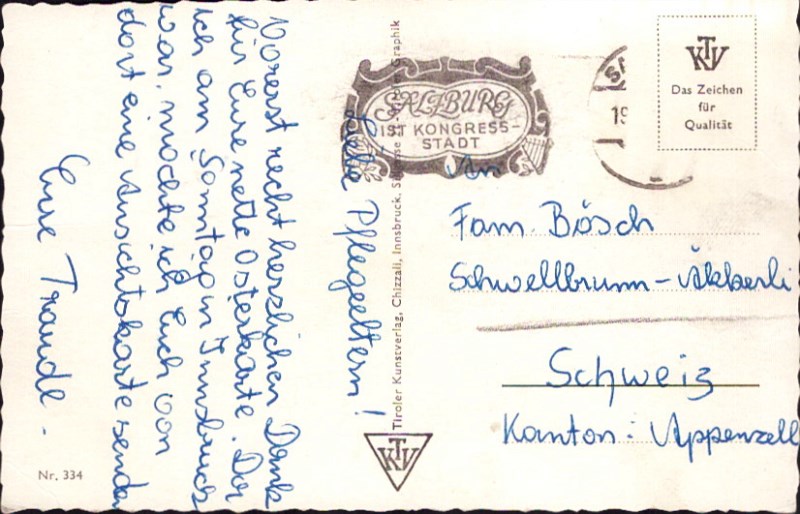 Liebe Pflegeeltern!
Vorerst recht herzlichen Dank
für Eure nette Osterkarte. Da
ich am Sonntag in Innsbruck
war, möchte ich Euch von
dort eine Ansichtskarte senden
Eure Traudl.
Nr. 334
Tiroler Kunstverlag, Chizzali, Innsbruck,
Graphik
KTV
SALZBURG
IST KONGRESS-
STADT
19
KTV
Das Zeichen
für
Qualität
An
Fam. Bösch
Schwellbrunn-Äkkerli
Schweiz
Kanton: Appenzell